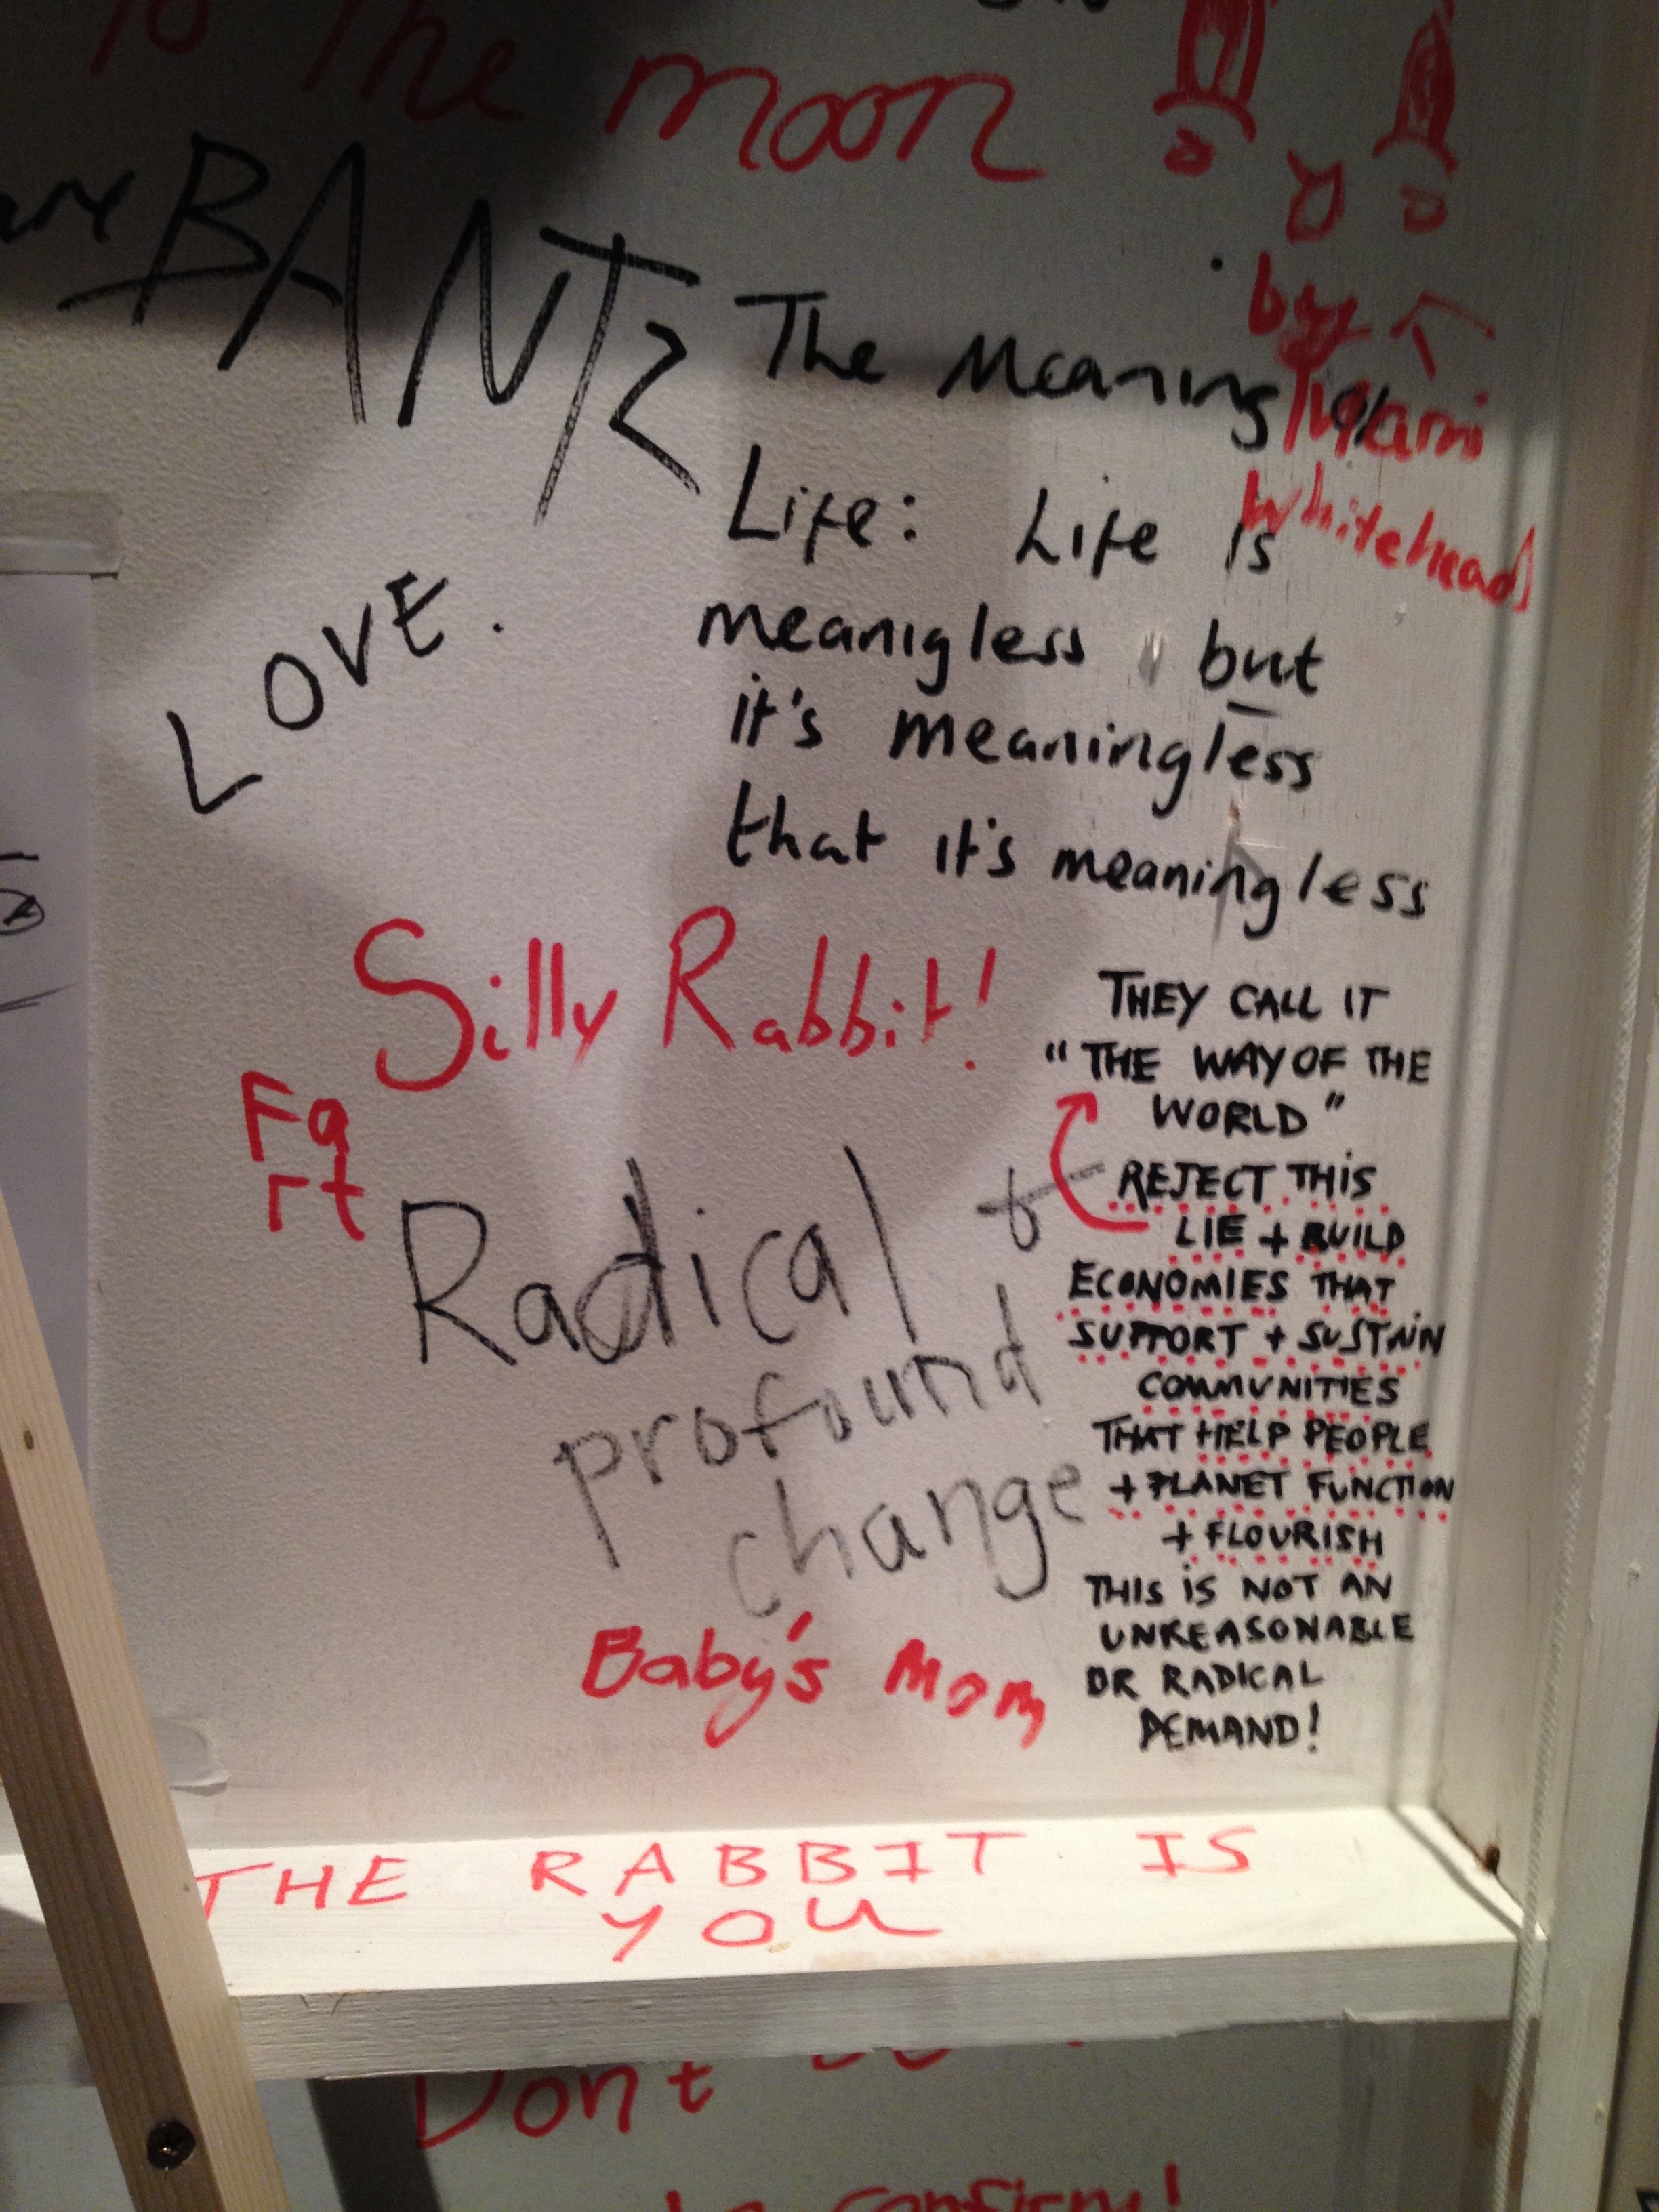 To the moon
BANTZ
by
The Meaning of
Whitehead
Life: Life is
meanigless but
it's meaningless
that it's meaningless
LOVE.
Silly Rabbit!
Fa
rt
Radical +
profound
change
THEY CALL IT
"THE WAY OF THE
WORLD"
REJECT THIS
LIE + BUILD
ECONOMIES THAT
SUPPORT + SUSTAIN
COMMUNITIES
THAT HELP PEOPLE
+ PLANET FUNCTION
+ FLOURISH
THIS IS NOT AN
UNREASONABLE
OR RADICAL
DEMAND!
Baby's Mom
THE RABBIT IS
YOU
Don't
confirm!